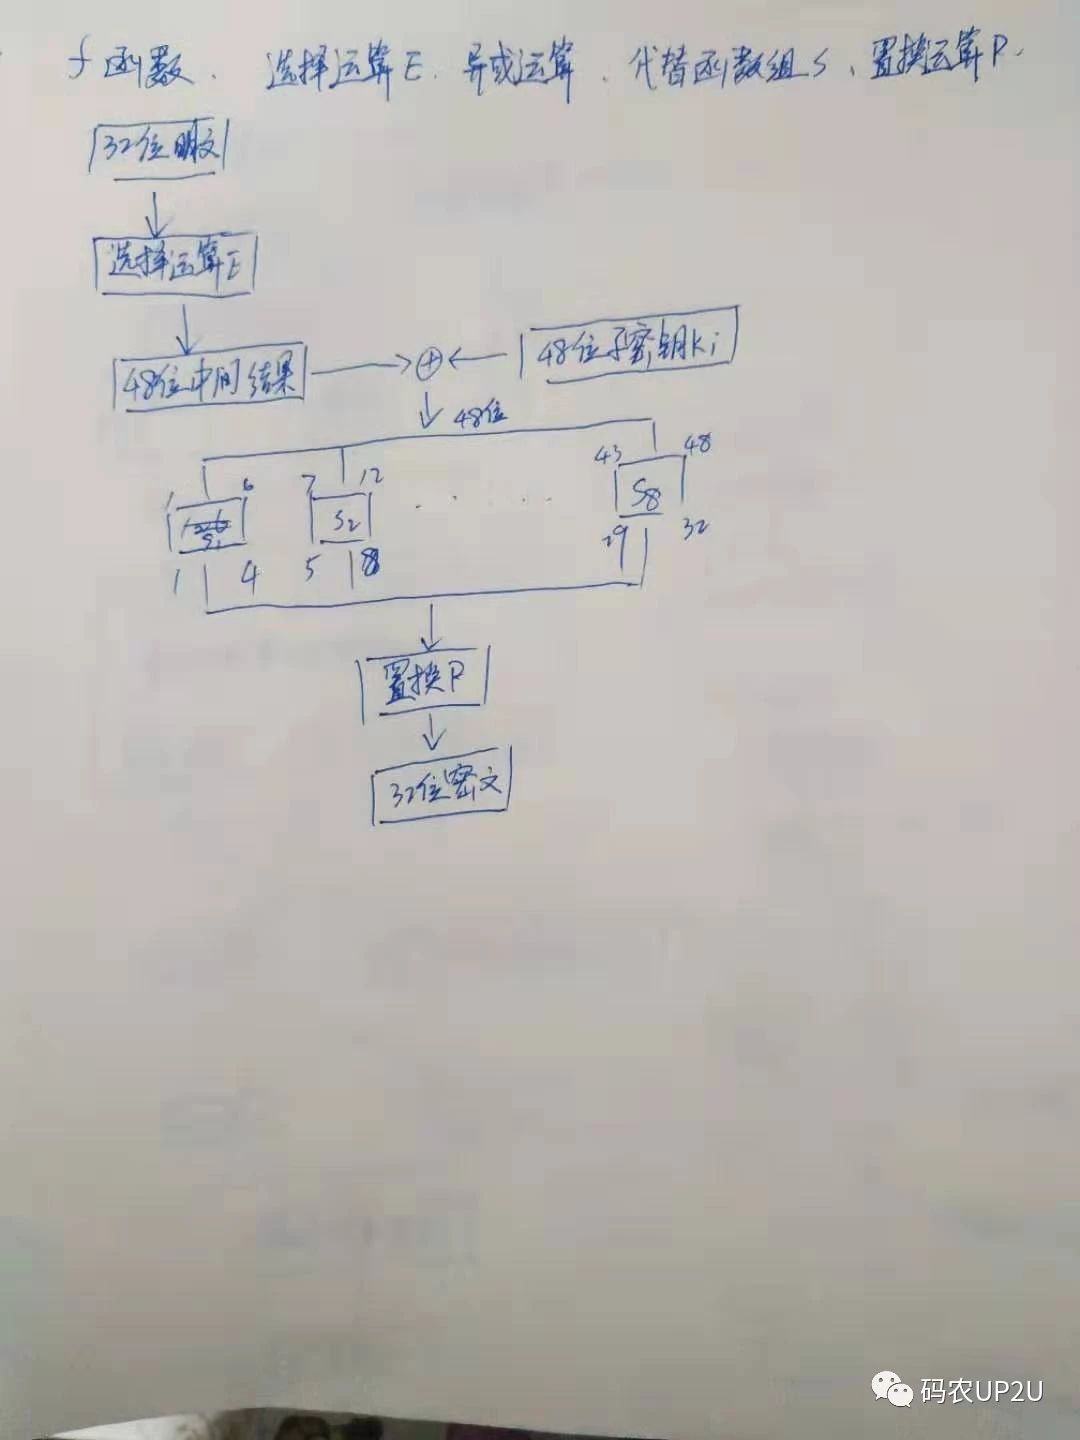 f函数、选择运算E、异或运算、代替函数组S、置换运算P.
32位明文
选择运算E
48位中间结果
⊕
48位子密钥Ki
48位
1 6 7 12 43 48
S1 S2 ...... S8
1 4 5 8 29 32
置换P
32位密文
码农UP2U